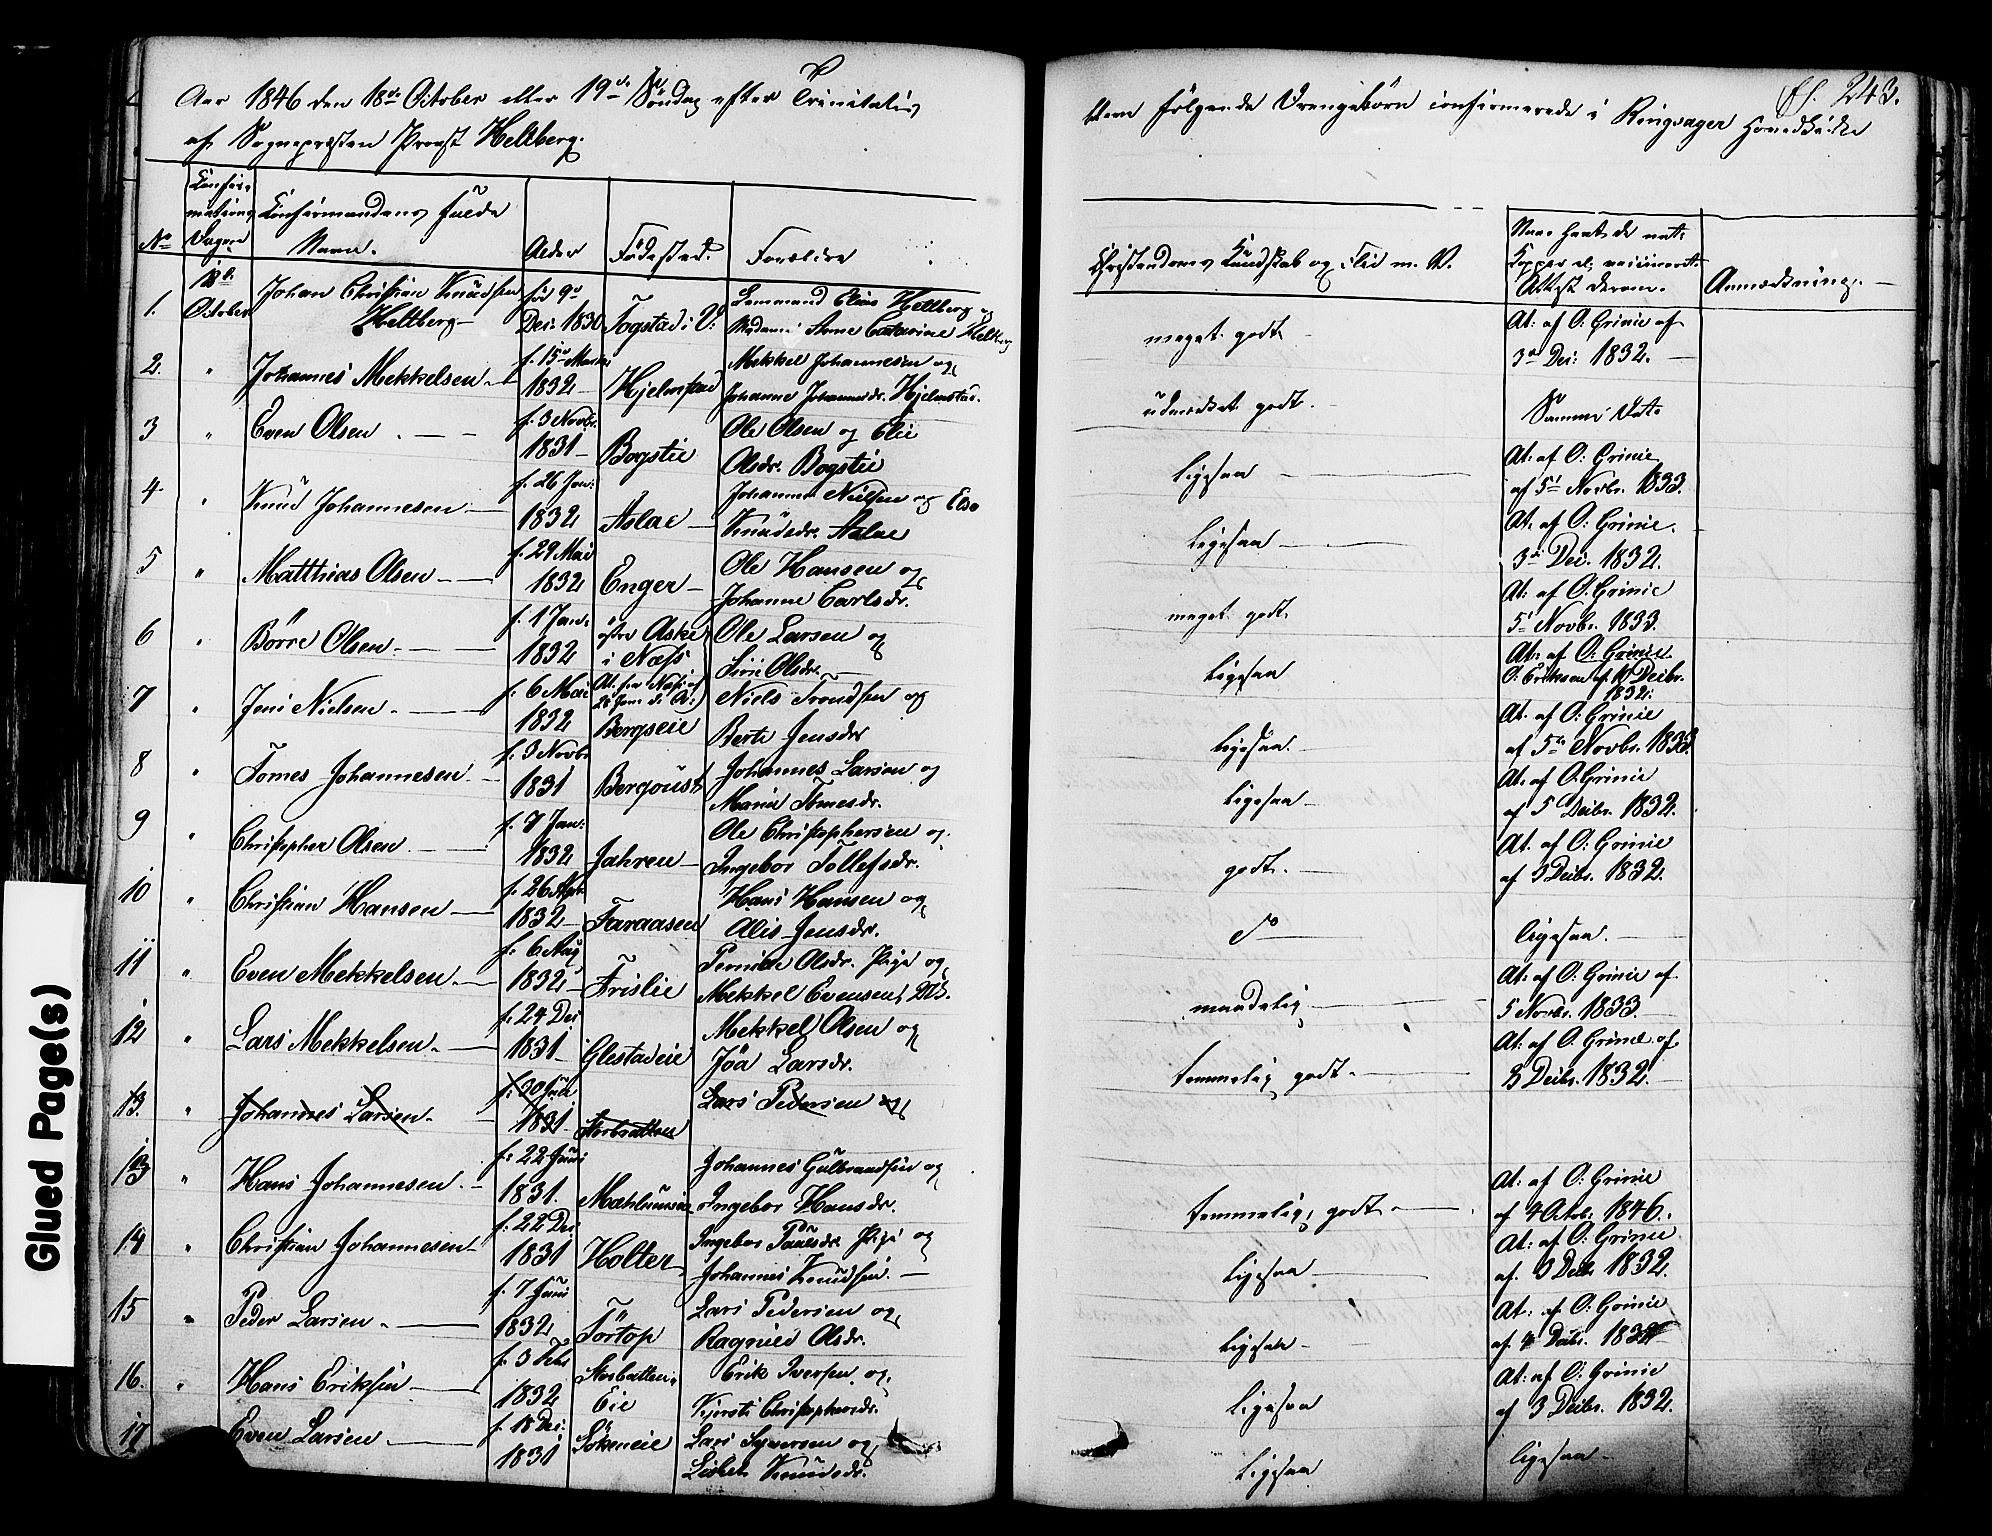 Aar 1846 den 18de October eller 19de Søndag efter Trinitatis
af Sognepresten Provst Heltberg.
ere følgende Drengebørn confirmerede i Ringsager Hovedkirke
fl. 243.
No
Confir-
mations
Dagen
Confirmandens fulde
Navn.
Alder
Födested.
Forældre
Christendoms Kundskab og Flid m. V.
Naar havt de nat:
Kopper el. vaccineret.
Attest derom.
Anmærkning.
1. 18de October Johan Christian Knudsen Heltberg
fød 9de Dec: 1830 Fogstad i V:
Lensmand Elias Heltberg og
Madame Anne Catarine Heltberg
meget godt
At: af O: Grinie af
3de Dec: 1832.
2. " Johannes Mekkelsen
f. 15de Marts 1832 Hjelmstad
Mekkel Johannesen og
Johanne Johannesdr. Hjelmstad.
udmærket godt.
Samme Dato
3 " Even Olsen
f. 3 Novbr. 1831 Bogstie
Ole Olsen og Elie
Olsdr. Bogstie
ligesaa
At: af O: Grinie
af 5te Novbr. 1833.
4 " Knud Johannesen
f. 26 Jan: 1832 Aslae
Johannes Nielsen og Else
Knudsdr. Aslae
ligesaa
At. af O: Grinie.
3de Dec. 1832.
5 " Matthias Olsen
f. 29 Mai 1832 Enger
Ole Hansen og
Johanne Carlsdr.
meget godt
At: af O: Grinie
5te Novbr. 1833.
6 " Börre Olsen.
f. 1 Jan. 1832 östre Aske i Næss
At. fra Næss af
28 Juni d: A:)
Ole Larsen og
Siri Olsdr.
ligesaa
At: af O: Grinie
O. Eriksen af 10 Decbr.
1832.
7 " Jens Nielsen.
f. 6 Mai 1832 Bergseie
Niels Trondsen og
Berte Jensdr
ligesaa.
At. af O: Grinie
af 5te Novbr. 1833
8 " Tomes Johannesen
f. 3 Novbr 1831 Bergoust
Johannes Larsen og
Maria Tomesdr.
ligesaa
At: af O: Grinie
af 5 Decbr. 1832.
9 " Christopher Olsen
f. 7 Jan: 1832 Jahren
Ole Christophersen og
Ingebor Tollefsdr.
godt.
At. af O: Grinie
af 3 Decbr. 1832.
10 " Christian Hansen
f. 26 Apr. 1832 Faraasen
Hans Hansen og
Alis Jensdr.
do
ligesaa.
11 " Even Mekkelsen.
f. 6 Aug 1832 Frislie
Pernille Olsdr. Pige og
Mekkel Evensen,
maadelig
At: af O: Grinie af
5 Novbr. 1833
12 " Lars Mekkelsen.
f. 24 Dec 1831 Glestadeie
Mekkel Olsen og
Jöa Larsdr.
temmelig godt.
At: af O. Grinie af
3 Decbr. 1832.
13. " Johannes Larsen
f. 20 1831 Storbratten
Lars Pedersen og
13 " Hans Johannesen.
f. 22 Juni 1831.
Johannes Gulbrandsen og
Ingebor Hansdr.
temmelig godt.
At: af O: Grinie
af 4 Octob. 1846.
14 " Christian Johannesen
f. 22 Dec. 1831 Holter
Ingebor Paulsdr. Pige og
Johannes Knudsen.
ligesaa
At: af O: Grinie
af. 3 Decb 1832.
15 " Peder Larsen
f. 7 Juni 1832 Förtop
Lars Pedersen og
Ragnild Olsdr.
ligesaa
At: af O: Grinie
af 4 Decbr. 1832
16. " Hans Eriksen
f. 3 Febr 1832 Storbatten Eie
Erik Iversen og
Kjersti Christophersdr.
ligesaa
At: af O: Grinie
af 3 Decbr. 1832.
17 Even Larsen
f. 18 Dec. 1831 Lökeneie
Lars Syversen og
Lisbet Knudsdr.
ligesaa
ligesaa
Glued Page(s)